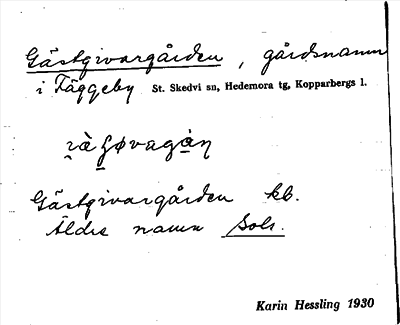 Gästgivargården, gårdsnamn
i Fäggeby St. Skedvi sn, Hedemora tg, Kopparbergs l.
Gästgivargården kb.
Äldre namn Sols.
Karin Hessling 1930